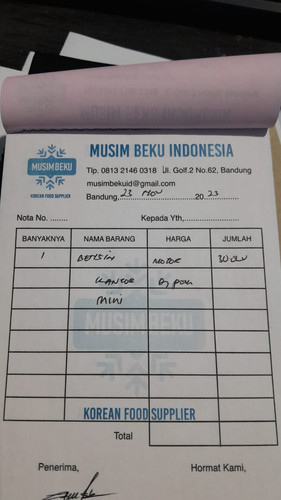 MUSIM BEKU INDONESIA
MUSIM BEKU
KOREAN FOOD SUPPLIER
Tlp. 0813 2146 0318 Jl. Golf.2 No.62, Bandung
musimbekuid@gmail.com
Bandung, 23 Nov 2023
Nota No. ........ Kepada Yth,........................
BANYAKNYA NAMA BARANG HARGA JUMLAH
1 BENSIN MOTOR
KANTOR
MINI
MUSIM BEKU
KOREAN FOOD SUPPLIER
Total
Penerima, Hormat Kami,